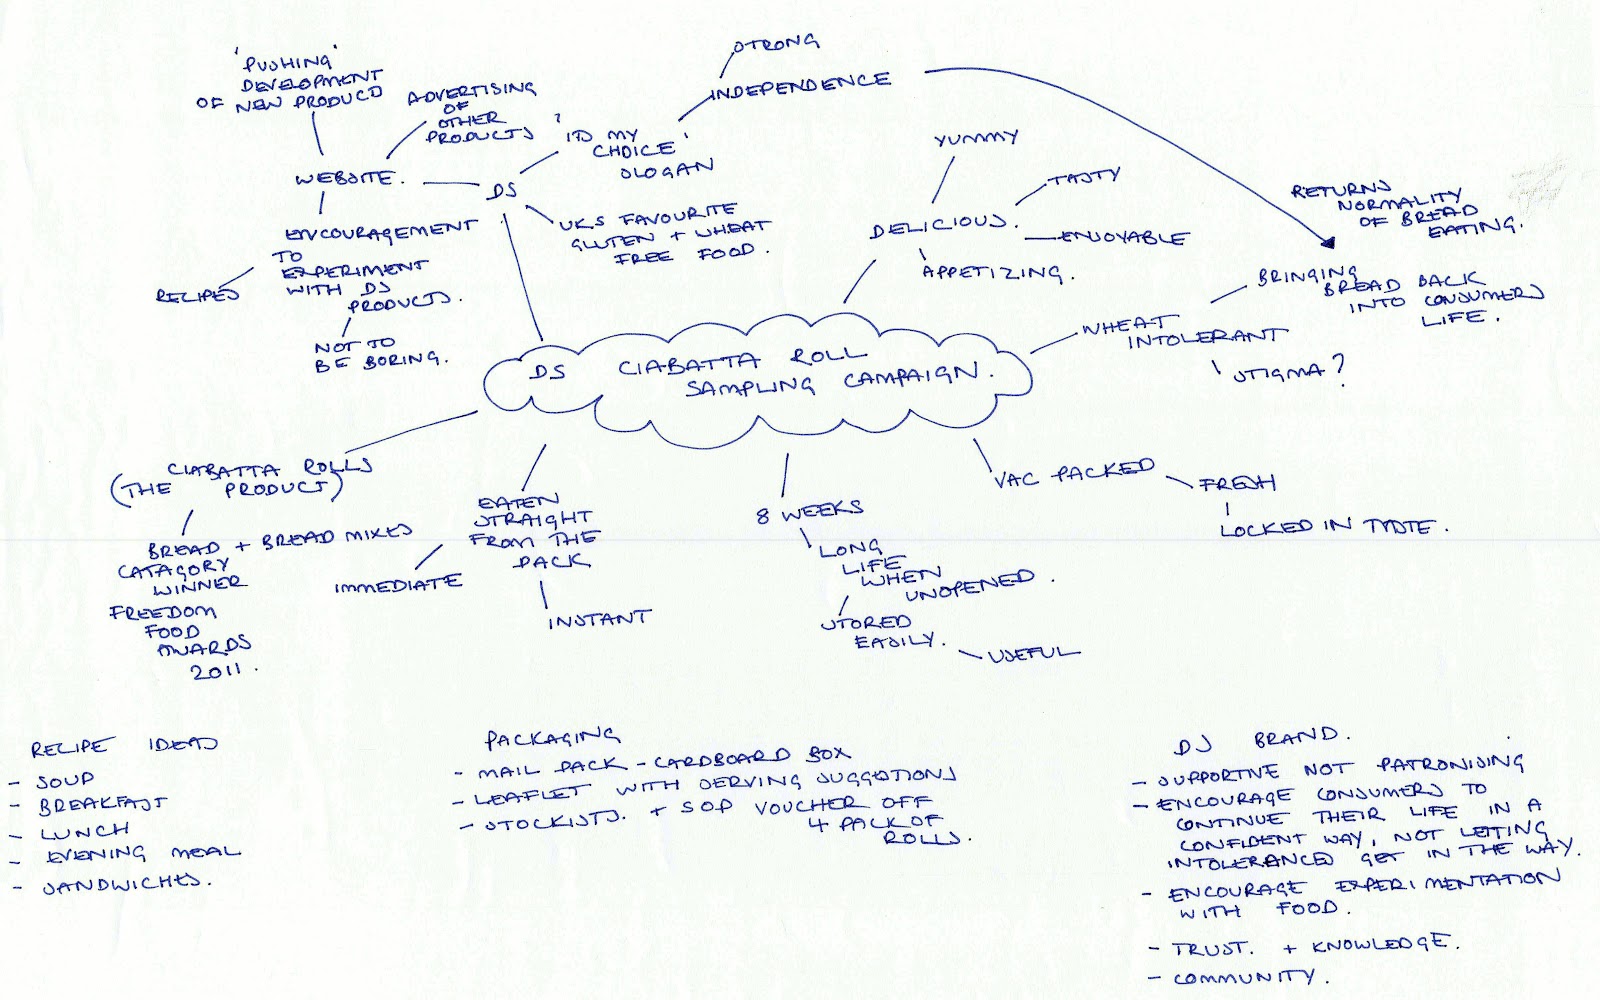 'PUSHING'
DEVELOPMENT
OF NEW PRODUCS
ADVERTISING
OF
OTHER
PRODUCTS
WEBSITE.
DS
'ITS MY
CHOICE'
SLOGAN
STRONG
INDEPENDENCE
UKS FAVOURITE
GLUTEN + WHEAT
FREE FOOD.
ENCOURAGEMENT
TO
EXPERIMENT
WITH DS
PRODUCTS.
RECIPES
NOT TO
BE BORING.
YUMMY
TASTY
DELICIOUS.
ENJOYABLE
APPETIZING.
RETURNS
NORMALITY
OF BREAD
EATING.
BRINGING
BREAD BACK
INTO CONSUMERS
LIFE.
WHEAT
INTOLERANT
STIGMA?
DS CIABATTA ROLL
SAMPLING CAMPAIGN.
CIABATTA ROLLS
(THE PRODUCT)
BREAD + BREAD MIXES
CATAGORY
WINNER
FREEDOM
FOOD
AWARDS
2011.
EATEN
STRAIGHT
FROM THE
PACK
IMMEDIATE
INSTANT
8 WEEKS
LONG
LIFE
WHEN
UNOPENED.
STORED
EASILY.
USEFUL
VAC PACKED
FRESH
LOCKED IN TASTE.
RECIPE IDEAS
- SOUP
- BREAKFAST
- LUNCH
- EVENING MEAL
- SANDWICHES.
PACKAGING
- MAIL PACK - CARDBOARD BOX
- LEAFLET WITH SERVING SUGGSTIONS
- STOCKISTS. + 50P VOUCHER OFF
4 PACK OF
ROLLS.
DS BRAND.
- SUPPORTIVE NOT PATRONISING
- ENCOURAGE CONSUMERS TO
CONTINUE THEIR LIFE IN A
CONFIDENT WAY, NOT LETTING
INTOLERANCES GET IN THE WAY.
- ENCOURAGE EXPERIMENTATION
WITH FOOD.
- TRUST. + KNOWLEDGE.
- COMMUNITY.